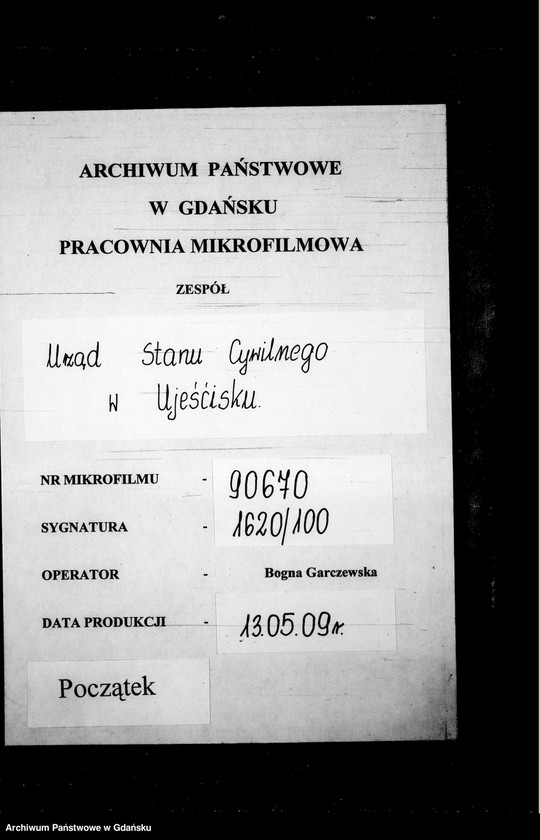 ARCHIWUM PAŃSTWOWE
W GDAŃSKU
PRACOWNIA MIKROFILMOWA
ZESPÓŁ
Urząd Stanu Cywilnego
w Ujeścisku.
NR MIKROFILMU - 90670
SYGNATURA - 1620/100
OPERATOR - Bogna Garczewska
DATA PRODUKCJI - 13.05.09r.
Początek
Archiwum Państwowe w Gdańsku